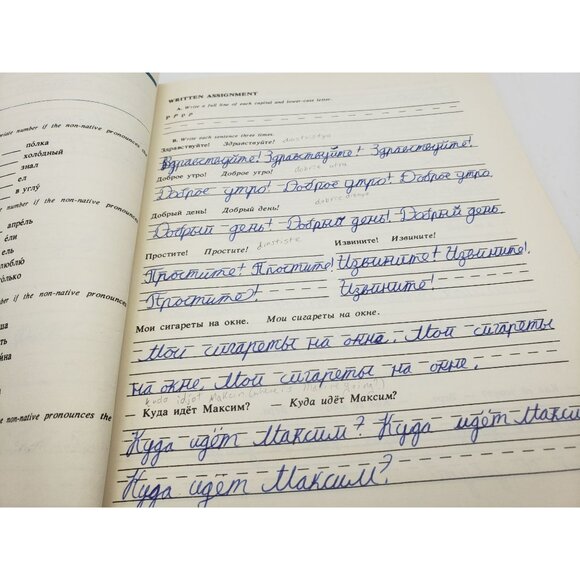 write number if the non-native pronounces the
по́лка
холо́дный
знал
ел
в углу́
number if the non-native pronounces the
апре́ль
е́ли
ель
люблю
только
number if the non-native pronounces
the non-native pronounces the
WRITTEN ASSIGNMENT
A. Write a full line of each capital and lower-case letter.
Р Р р р
B. Write each sentence three times.
Здравствуйте! Здравствуйте!
Здравствуйте! Здравствуйте! Здравствуйте!
Доброе утро! Доброе утро!
Доброе утро! Доброе утро! Доброе утро.
Добрый день! Добрый день!
Добрый день! Добрый день! Добрый день.
Простите! Простите! Извините! Извините!
Простите! Простите! Извините! Извините!
Простите! Извините!
Мои сигареты на окне. Мои сигареты на окне.
Мои сигареты на окне. Мои сигареты
на окне. Мои сигареты на окне.
— Куда идёт Максим? — Куда идёт Максим?
Куда идёт Максим? Куда идёт Максим
Куда идет Максим?